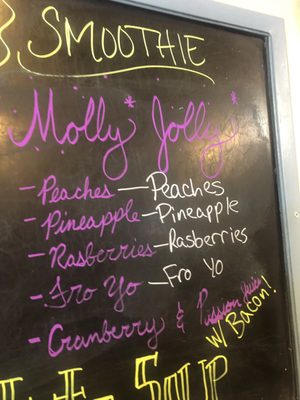 SMOOTHIE
*Molly Jolly*
-Peaches—Peaches
-Pineapple-Pineapple
-Rasberries-Rasberries
-Fro Yo—Fro Yo
-Cranberry & Passion Juice
w/ Bacon!
SOUP